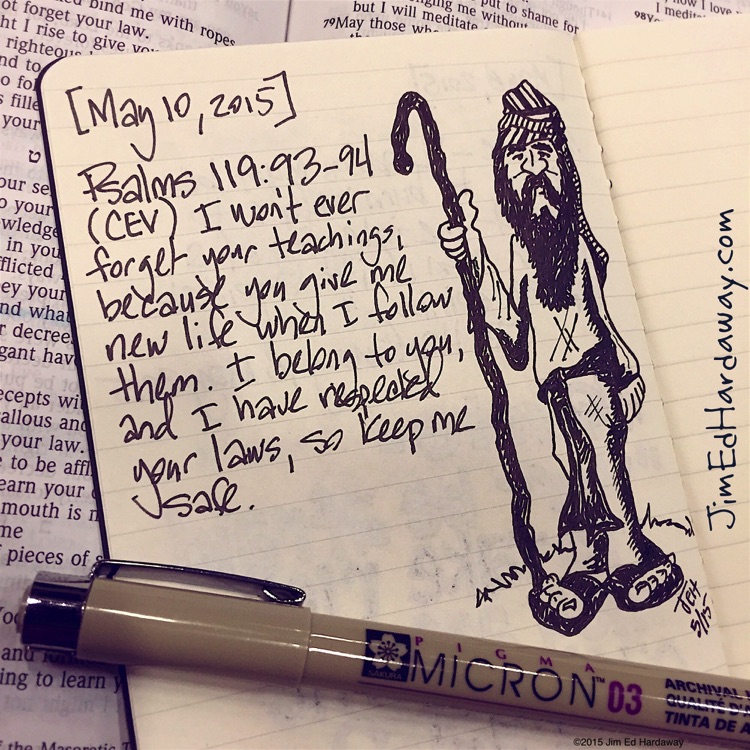 bind me with ropes
ot forget your law.
ht I rise to give you
righteous
and to
o fo
s fille
your
our se
o your
owledge
in you
fflicted
ey your
nd what
r decree
gant hav
ecepts wi
allous and
your law.
e to be affl
earn your
mouth is m
me
f pieces of
and
ing to learn y
of the Masoretic T
put to shame for
nging me without
but I will meditate
79May those who
now I love
I medit
98Yo
[May 10, 2015]
Psalms 119:93-94
(CEV) I won't ever
forget your teachings,
because you give me
new life when I follow
them. I belong to you,
and I have respected
your laws, so keep me
safe.
JEH
5/15
JimEdHardaway.com
SAKURA
PIGMA
MICRON™ 03
ARCHIVAL
QUALITÉ D'A
TINTA DE A
©2015 Jim Ed Hardaway